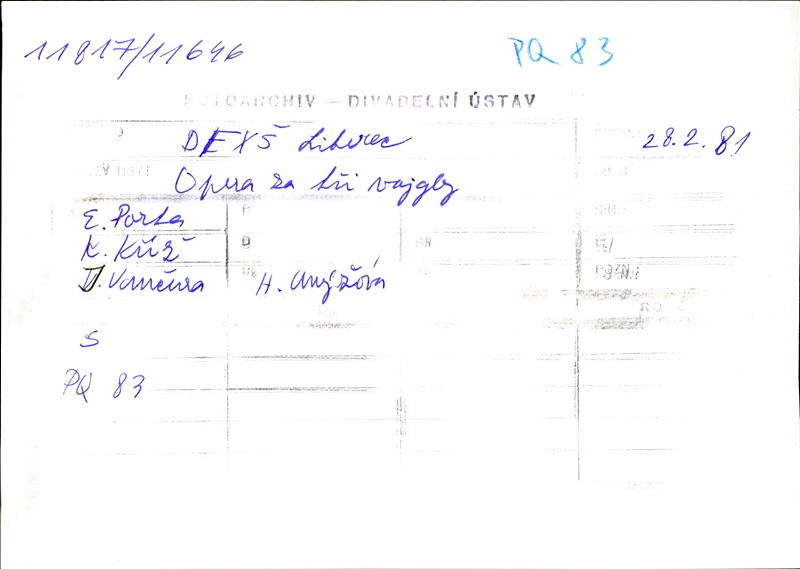 11817/11646 PQ 83
FOTOARCHIV — DIVADELNÍ ÚSTAV
DFXŠ Liberec 28.2.81
Opera za tři vajgly
E. Porta
K. Kříž
J. Vančura H. Anýžová
S
PQ 83